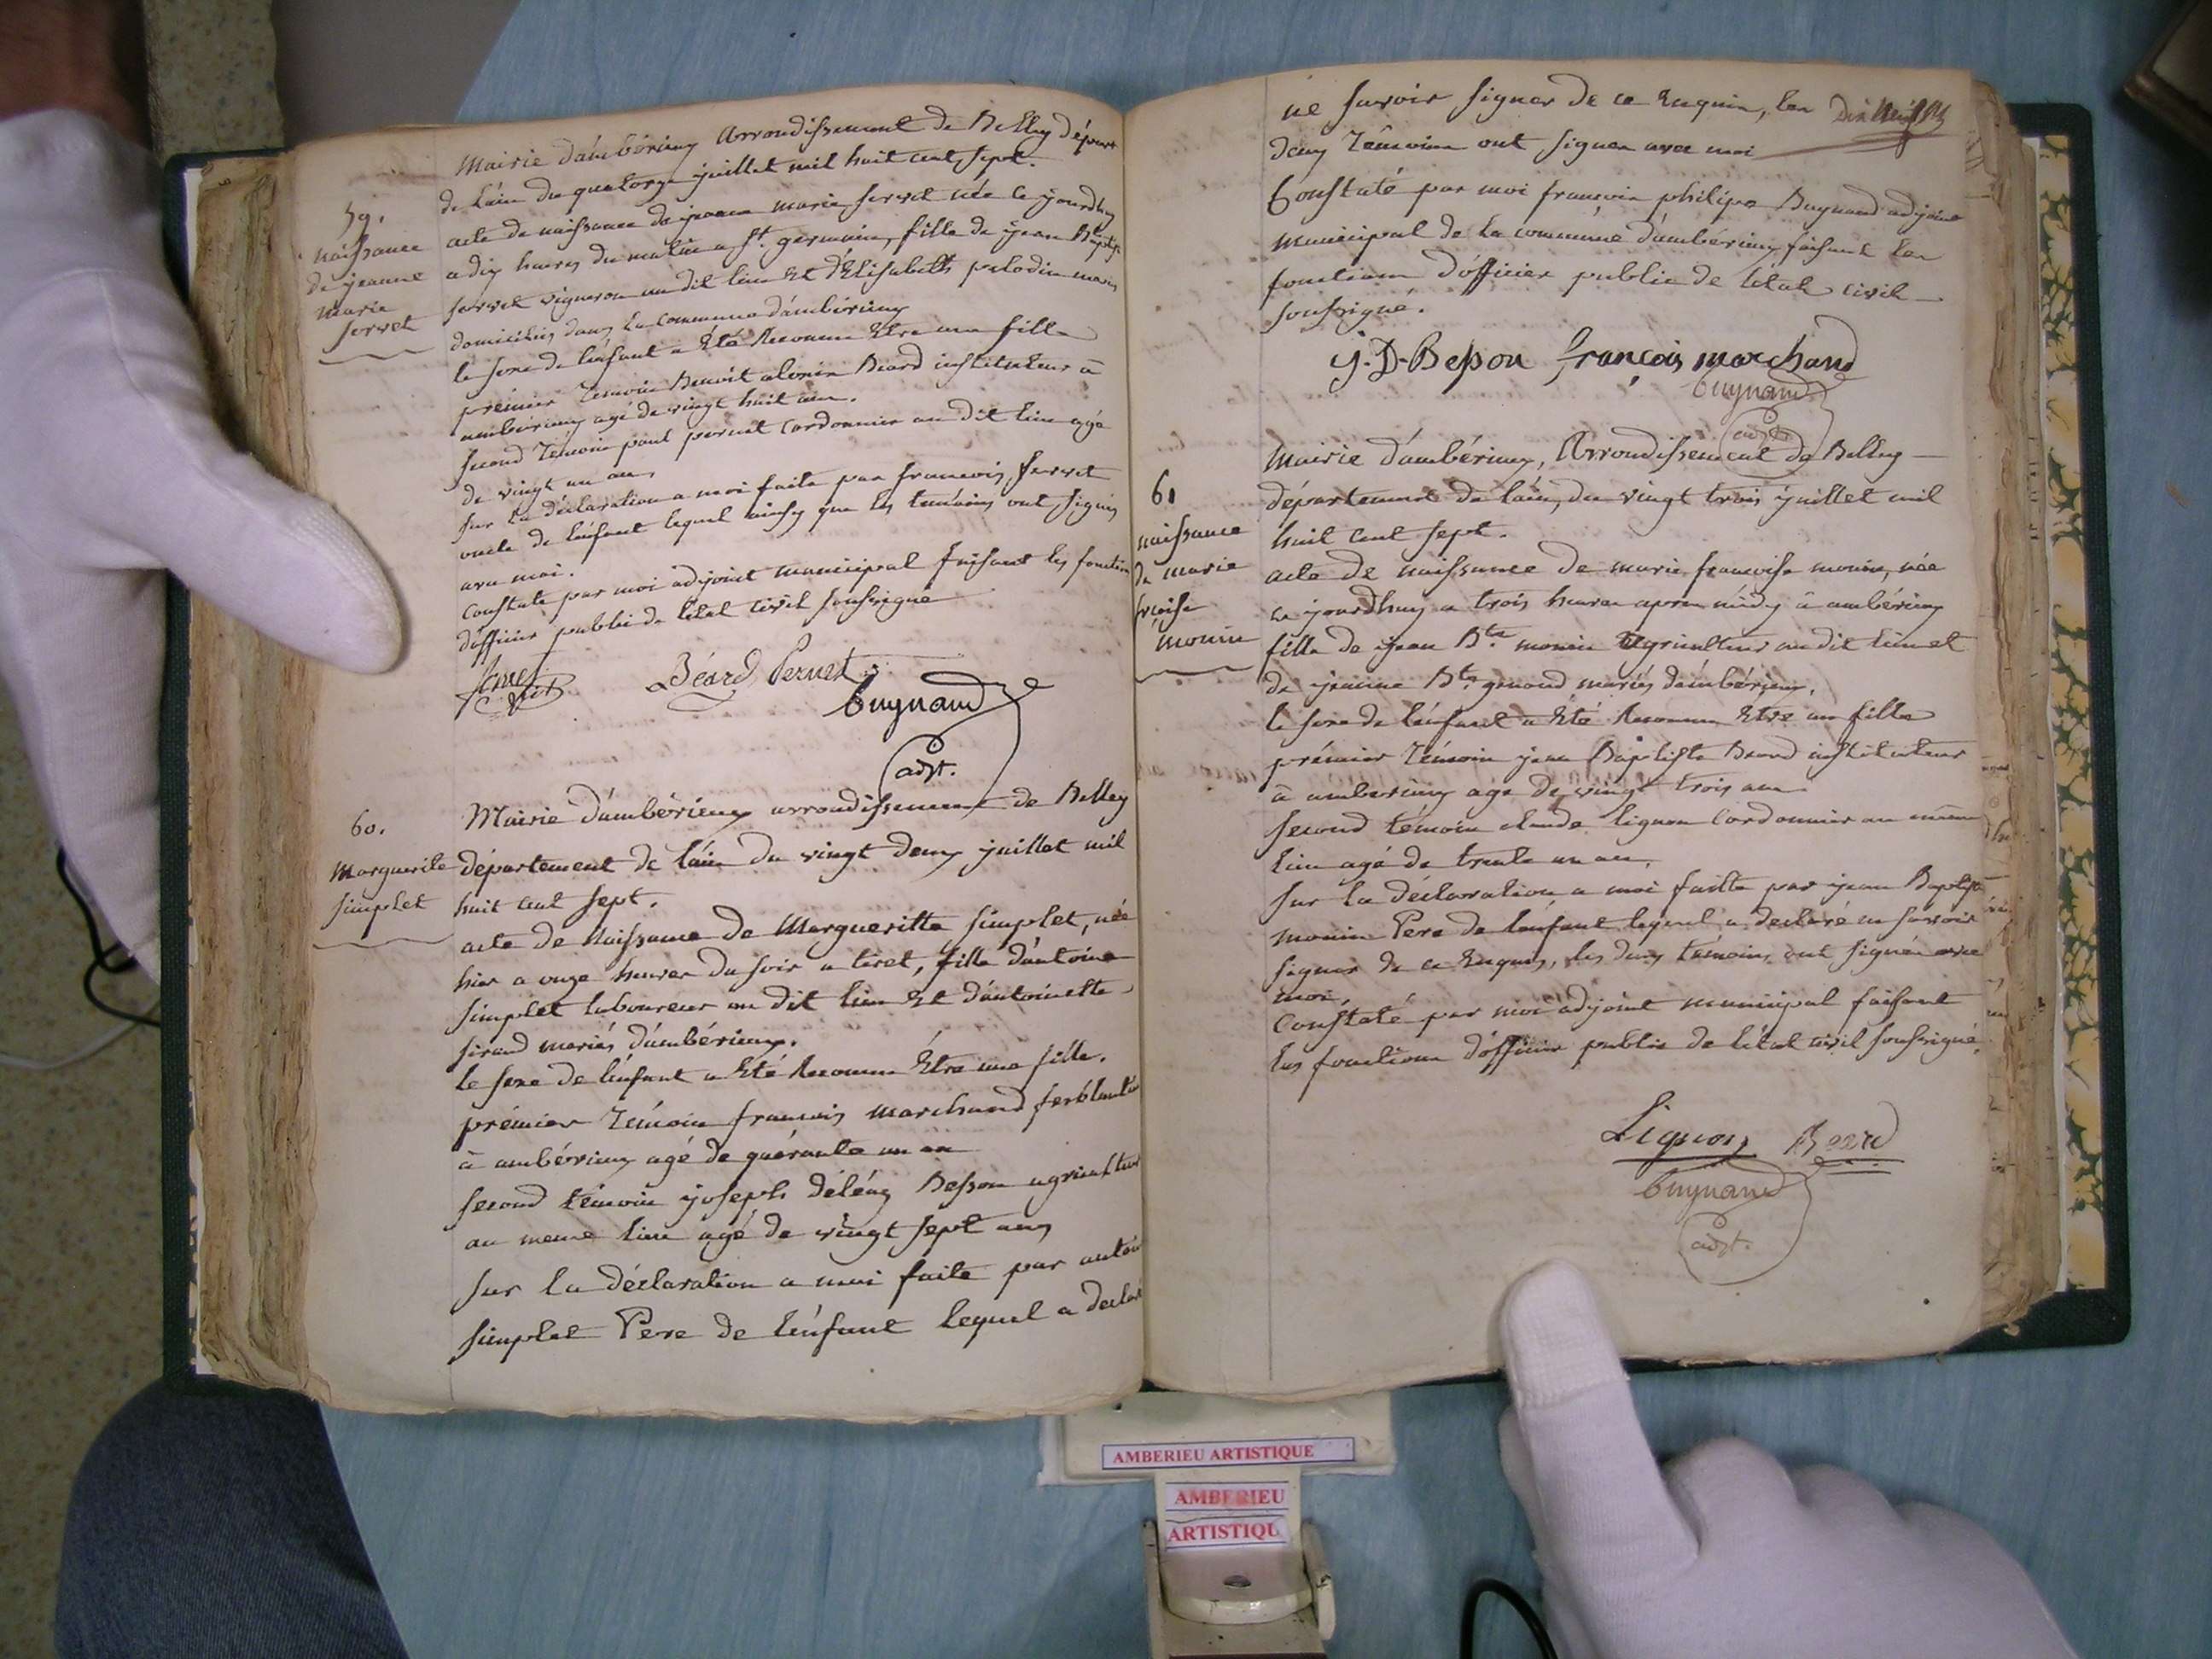 59.
naissance
de jeanne
marie
servet
Mairie d'ambérieux Arrondissement de Belley départ
de l'ain du quatorze juillet mil huit cent sept.
acte de naissance de jeanne marie servet née ce jourdhuy
a dix heures du matin a St. germain, fille de jean Baptiste
servet vigneron au dit lieu Et d'Elisabeth palodin mariés
domiciliés dans la commune d'ambérieux
le sexe de l'enfant a Eté Reconnu Etre une fille
premier Témoin Benoit Béard instituteur à
ambérieux agé de vingt huit ans.
second Témoin paul pernet Cordonnier au dit lieu agé
de vingt un ans
sur la déclaration a moi faite par francois servet
oncle de l'enfant lequel ainsy que les temoins ont signés
avec moi.
Constaté par moi adjoint municipal faisant les fonctions
d'officier public de l'état civil soussigné
Servet Béard Pernet
Buynand
adjt.
60.
Marguerite
simplet
Mairie d'ambérieux arrondissement de Belley
département de l'ain du vingt deux juillet mil
huit cent sept.
acte de Naissance de Margueritte simplet, née
hier a onze heures du soir a tiret, fille d'antoine
simplet laboureur au dit lieu Et d'antoinette
sirand mariés d'ambérieux.
le sexe de l'enfant a Eté Reconnu Etre une fille.
prémier Témoin francois marchand ferblantier
à ambérieux agé de quarante un an
second témoin joseph Besson agriculteur
au meme lieu agé de vingt sept ans
sur la déclaration a moi faite par antoine
simplet Pere de l'enfant lequel a declaré
ne savoir signer de ce Enquis, les
deux Témoins ont signer avec moi
Constaté par moi francois philipe Buynand adjoint
municipal de la commune d'ambérieux faisant les
fonctions d'officier public de l'état civil
soussigné.
J. D. Besson françois marchand
Buynand
adjt.
61
naissance
de marie
fçoise
monin
Mairie d'ambérieux, Arrondissement de Belley
département de l'ain, du vingt trois juillet mil
huit cent sept.
acte de naissance de marie francoise monin, née
ce jourdhuy a trois heures apres midy à ambérieux
fille de jean Bte. monin agriculteur au dit lieu et
de jeanne Bte. genoud mariés d'ambérieux.
le sexe de l'enfant a Eté Reconnu Etre une fille
prémier Témoin jean Baptiste Beard instituteur
à amberieux agé de vingt trois ans
second témoin claude lignon Cordonnier au même
lieu agé de trente un ans.
sur la déclaration a moi faitte par jean Baptiste
monin Pere de l'enfant lequel a declaré ne savoir
signer de ce Enquis, les deux témoins ont signés avec
moi.
Constaté par moi adjoint municipal faisant
les fonctions d'officier public de l'état civil soussigné.
Lignon Beard
Buynand
adjt.
AMBERIEU ARTISTIQUE
AMBERIEU
ARTISTIQU